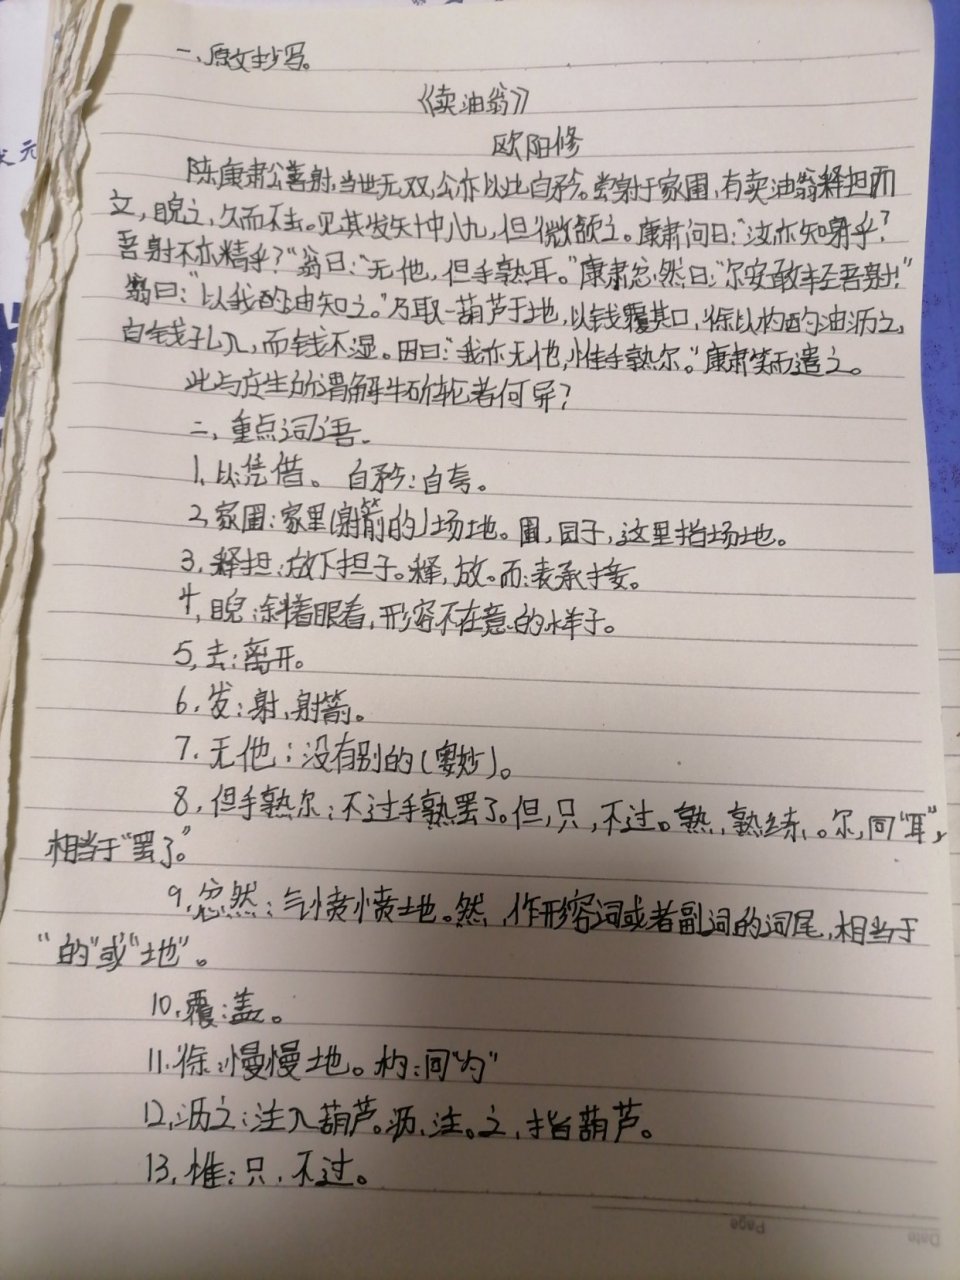 一、原文抄写。
《卖油翁》
欧阳修
陈康肃公善射,当世无双,公亦以此自矜。尝射于家圃,有卖油翁释担而
立,睨之,久而不去。见其发矢十中八九,但微颔之。康肃问曰:"汝亦知射乎?
吾射不亦精乎?"翁曰:"无他,但手熟耳。"康肃忿然曰:"尔安敢轻吾射!"
翁曰:"以我酌油知之。"乃取一葫芦于地,以钱覆其口,徐以杓酌油沥之,
自钱孔入,而钱不湿。因曰:"我亦无他,惟手熟尔。"康肃笑而遣之。
此与庄生所谓解牛斫轮者何异?
二、重点词语.
1.以:凭借。 自矜:自夸。
2.家圃:家里(射箭的)场地。圃,园子,这里指场地。
3.释担:放下担子。释,放。而:表承接。
4,睨:斜着眼看,形容不在意的样子。
5,去:离开。
6.发:射,射箭。
7.无他:没有别的(奥妙)。
8,但手熟尔:不过手熟罢了。但,只,不过。熟,熟练,。尔,同"耳",
相当于"罢了。"
9.忿然:气愤愤地。然,作形容词或者副词的词尾,相当于
"的"或"地"。
10.覆:盖。
11.徐:慢慢地。杓:同"勺"
12,沥之:注入葫芦。沥,注。之,指葫芦。
13,惟:只,不过。
Page
Date